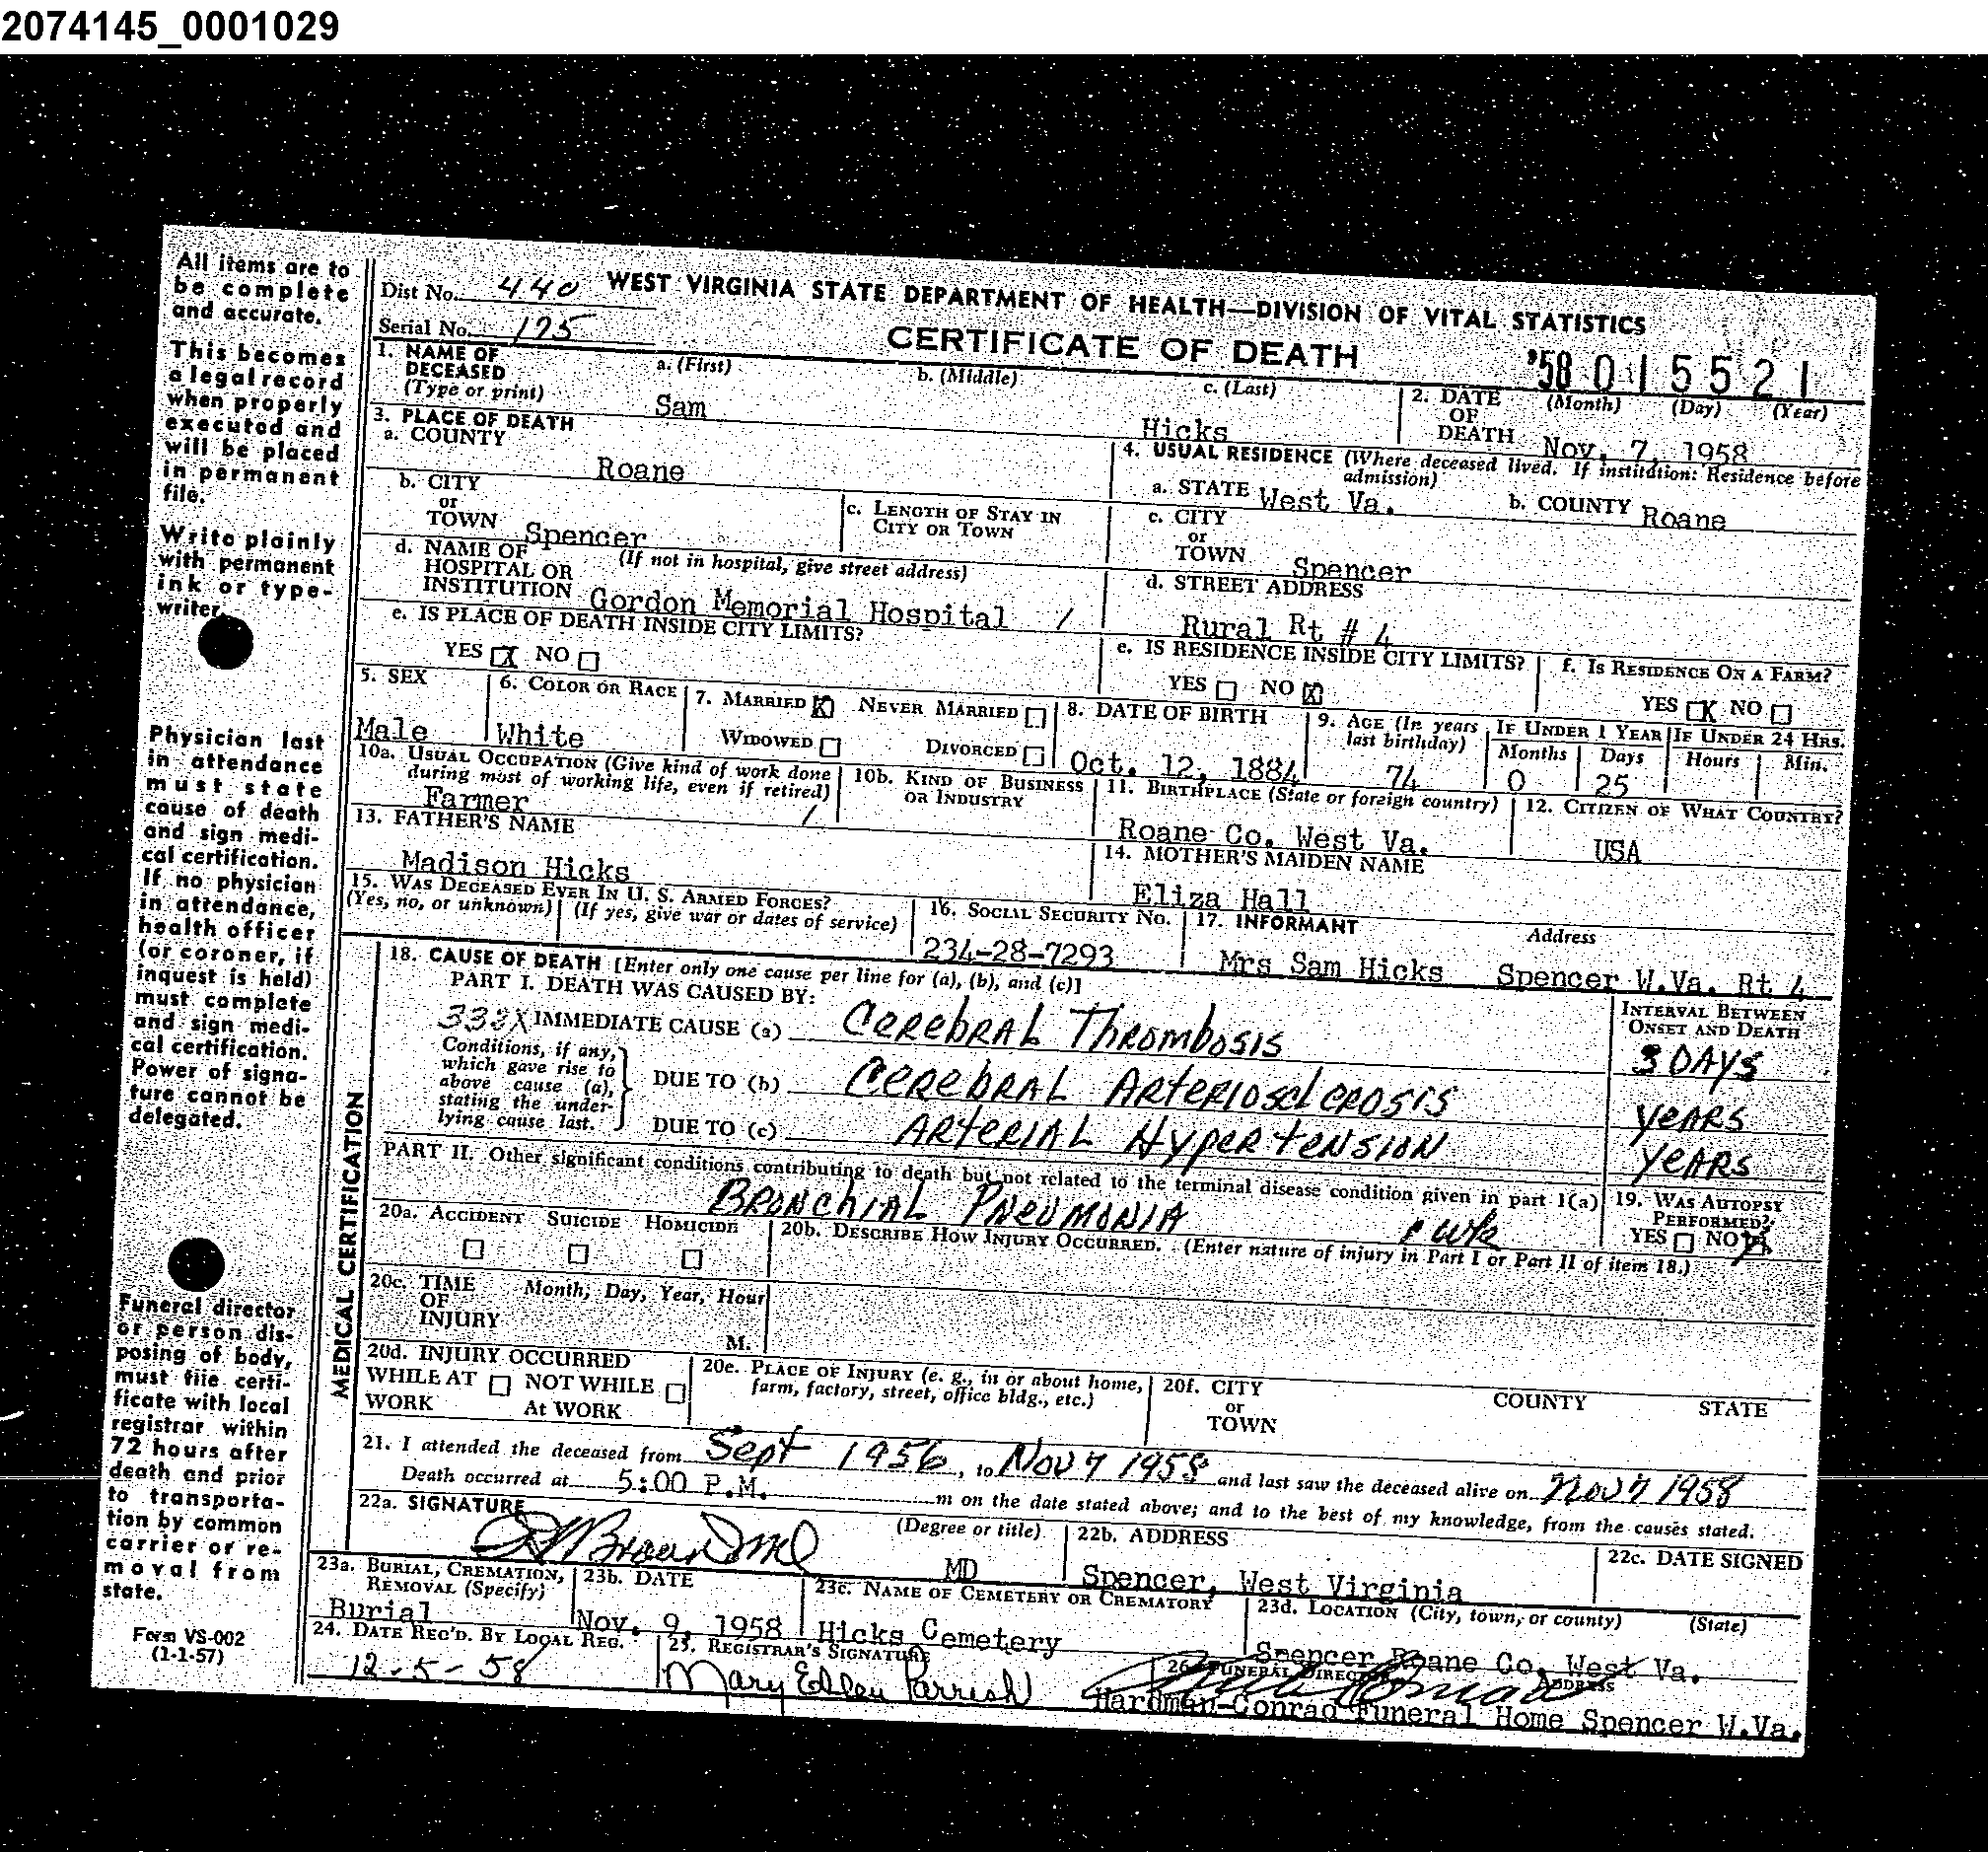 2074145_0001029
All items are to
be complete
and accurate.
This becomes
a legal record
when properly
executed and
will be placed
in permanent
file.
Write plainly
with permanent
ink or type-
writer.
Physician last
in attendance
must state
cause of death
and sign medi-
cal certification.
If no physician
in attendance,
health officer
(or coroner, if
inquest is held)
must complete
and sign medi-
cal certification.
Power of signa-
ture cannot be
delegated.
Funeral director
or person dis-
posing of body,
must file certi-
ficate with local
registrar within
72 hours after
death and prior
to transporta-
tion by common
carrier or re-
moval from
state.
Form VS-002
(1-1-57)
Dist No. 440 WEST VIRGINIA STATE DEPARTMENT OF HEALTH—DIVISION OF VITAL STATISTICS
Serial No. 175 CERTIFICATE OF DEATH '58 015521
1. NAME OF DECEASED (Type or print) a. (First) b. (Middle) c. (Last) 2. DATE OF DEATH (Month) (Day) (Year)
Sam Hicks Nov. 7, 1958
3. PLACE OF DEATH
a. COUNTY Roane
4. USUAL RESIDENCE (Where deceased lived. If institution: Residence before admission)
a. STATE West Va. b. COUNTY Roane
b. CITY or TOWN Spencer c. LENGTH OF STAY IN CITY OR TOWN
c. CITY or TOWN Spencer
d. NAME OF HOSPITAL OR INSTITUTION (If not in hospital, give street address) Gordon Memorial Hospital /
d. STREET ADDRESS Rural Rt # 4
e. IS PLACE OF DEATH INSIDE CITY LIMITS?
YES X NO
e. IS RESIDENCE INSIDE CITY LIMITS? f. IS RESIDENCE ON A FARM?
YES NO X YES X NO
5. SEX 6. COLOR OR RACE 7. MARRIED X NEVER MARRIED 8. DATE OF BIRTH 9. AGE (In years last birthday) IF UNDER 1 YEAR IF UNDER 24 HRS.
Male White WIDOWED DIVORCED Oct. 12, 1884 74 Months 0 Days 25 Hours Min.
10a. USUAL OCCUPATION (Give kind of work done during most of working life, even if retired) 10b. KIND OF BUSINESS OR INDUSTRY 11. BIRTHPLACE (State or foreign country) 12. CITIZEN OF WHAT COUNTRY?
Farmer / Roane Co. West Va. USA
13. FATHER'S NAME 14. MOTHER'S MAIDEN NAME
Madison Hicks Eliza Hall
15. WAS DECEASED EVER IN U. S. ARMED FORCES? (Yes, no, or unknown) (If yes, give war or dates of service) 16. SOCIAL SECURITY NO. 17. INFORMANT Address
234-28-7293 Mrs Sam Hicks Spencer W.Va. Rt 4
MEDICAL CERTIFICATION
18. CAUSE OF DEATH [Enter only one cause per line for (a), (b), and (c)]
PART I. DEATH WAS CAUSED BY: INTERVAL BETWEEN ONSET AND DEATH
332X IMMEDIATE CAUSE (a) CEREBRAL THROMBOSIS 3 DAYS
Conditions, if any, which gave rise to above cause (a), stating the under-lying cause last.
DUE TO (b) CEREBRAL ARTERIOSCLEROSIS YEARS
DUE TO (c) ARTERIAL HYPERTENSION YEARS
PART II. Other significant conditions contributing to death but not related to the terminal disease condition given in part I(a) 19. WAS AUTOPSY PERFORMED?
BRONCHIAL PNEUMONIA 1 wk YES NO X
20a. ACCIDENT SUICIDE HOMICIDE 20b. DESCRIBE HOW INJURY OCCURRED. (Enter nature of injury in Part I or Part II of item 18.)
20c. TIME OF INJURY Month, Day, Year, Hour M.
20d. INJURY OCCURRED WHILE AT WORK NOT WHILE At WORK 20e. PLACE OF INJURY (e. g., in or about home, farm, factory, street, office bldg., etc.) 20f. CITY or TOWN COUNTY STATE
21. I attended the deceased from Sept 1956, to Nov 7 1958 and last saw the deceased alive on Nov 7 1958
Death occurred at 5:00 P.M. m on the date stated above; and to the best of my knowledge, from the causes stated.
22a. SIGNATURE (Degree or title) 22b. ADDRESS 22c. DATE SIGNED
MD Spencer, West Virginia
23a. BURIAL, CREMATION, REMOVAL (Specify) 23b. DATE 23c. NAME OF CEMETERY OR CREMATORY 23d. LOCATION (City, town, or county) (State)
Burial Nov. 9, 1958 Hicks Cemetery Spencer Roane Co. West Va.
24. DATE REC'D. BY LOCAL REG. 25. REGISTRAR'S SIGNATURE 26. FUNERAL DIRECTOR ADDRESS
12-5-58 Mary Ellen Parrish Hardman-Conrad Funeral Home Spencer W.Va.